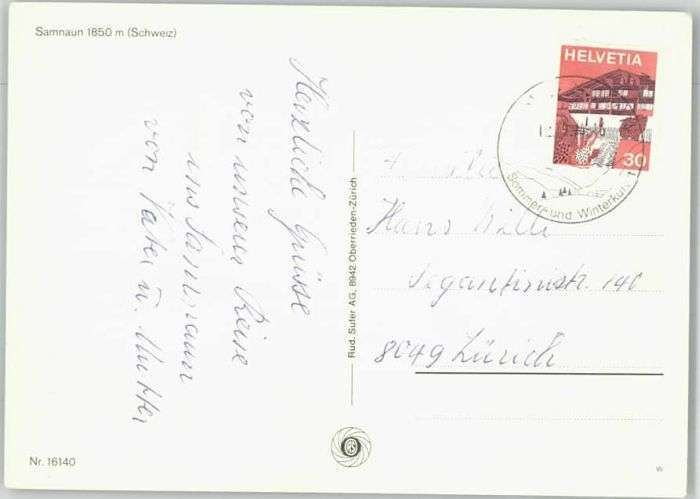 Samnaun 1850 m (Schweiz)
HELVETIA
30
Sommer- und Winterkur
Herzliche Grüsse
von unserer Reise
ins Samnaun
von Vater u. Mutter
Rud. Sufer AG, 8942 Oberrieden-Zürich
Hans
Segantinistr. 140
8049 Zürich
Nr. 16140